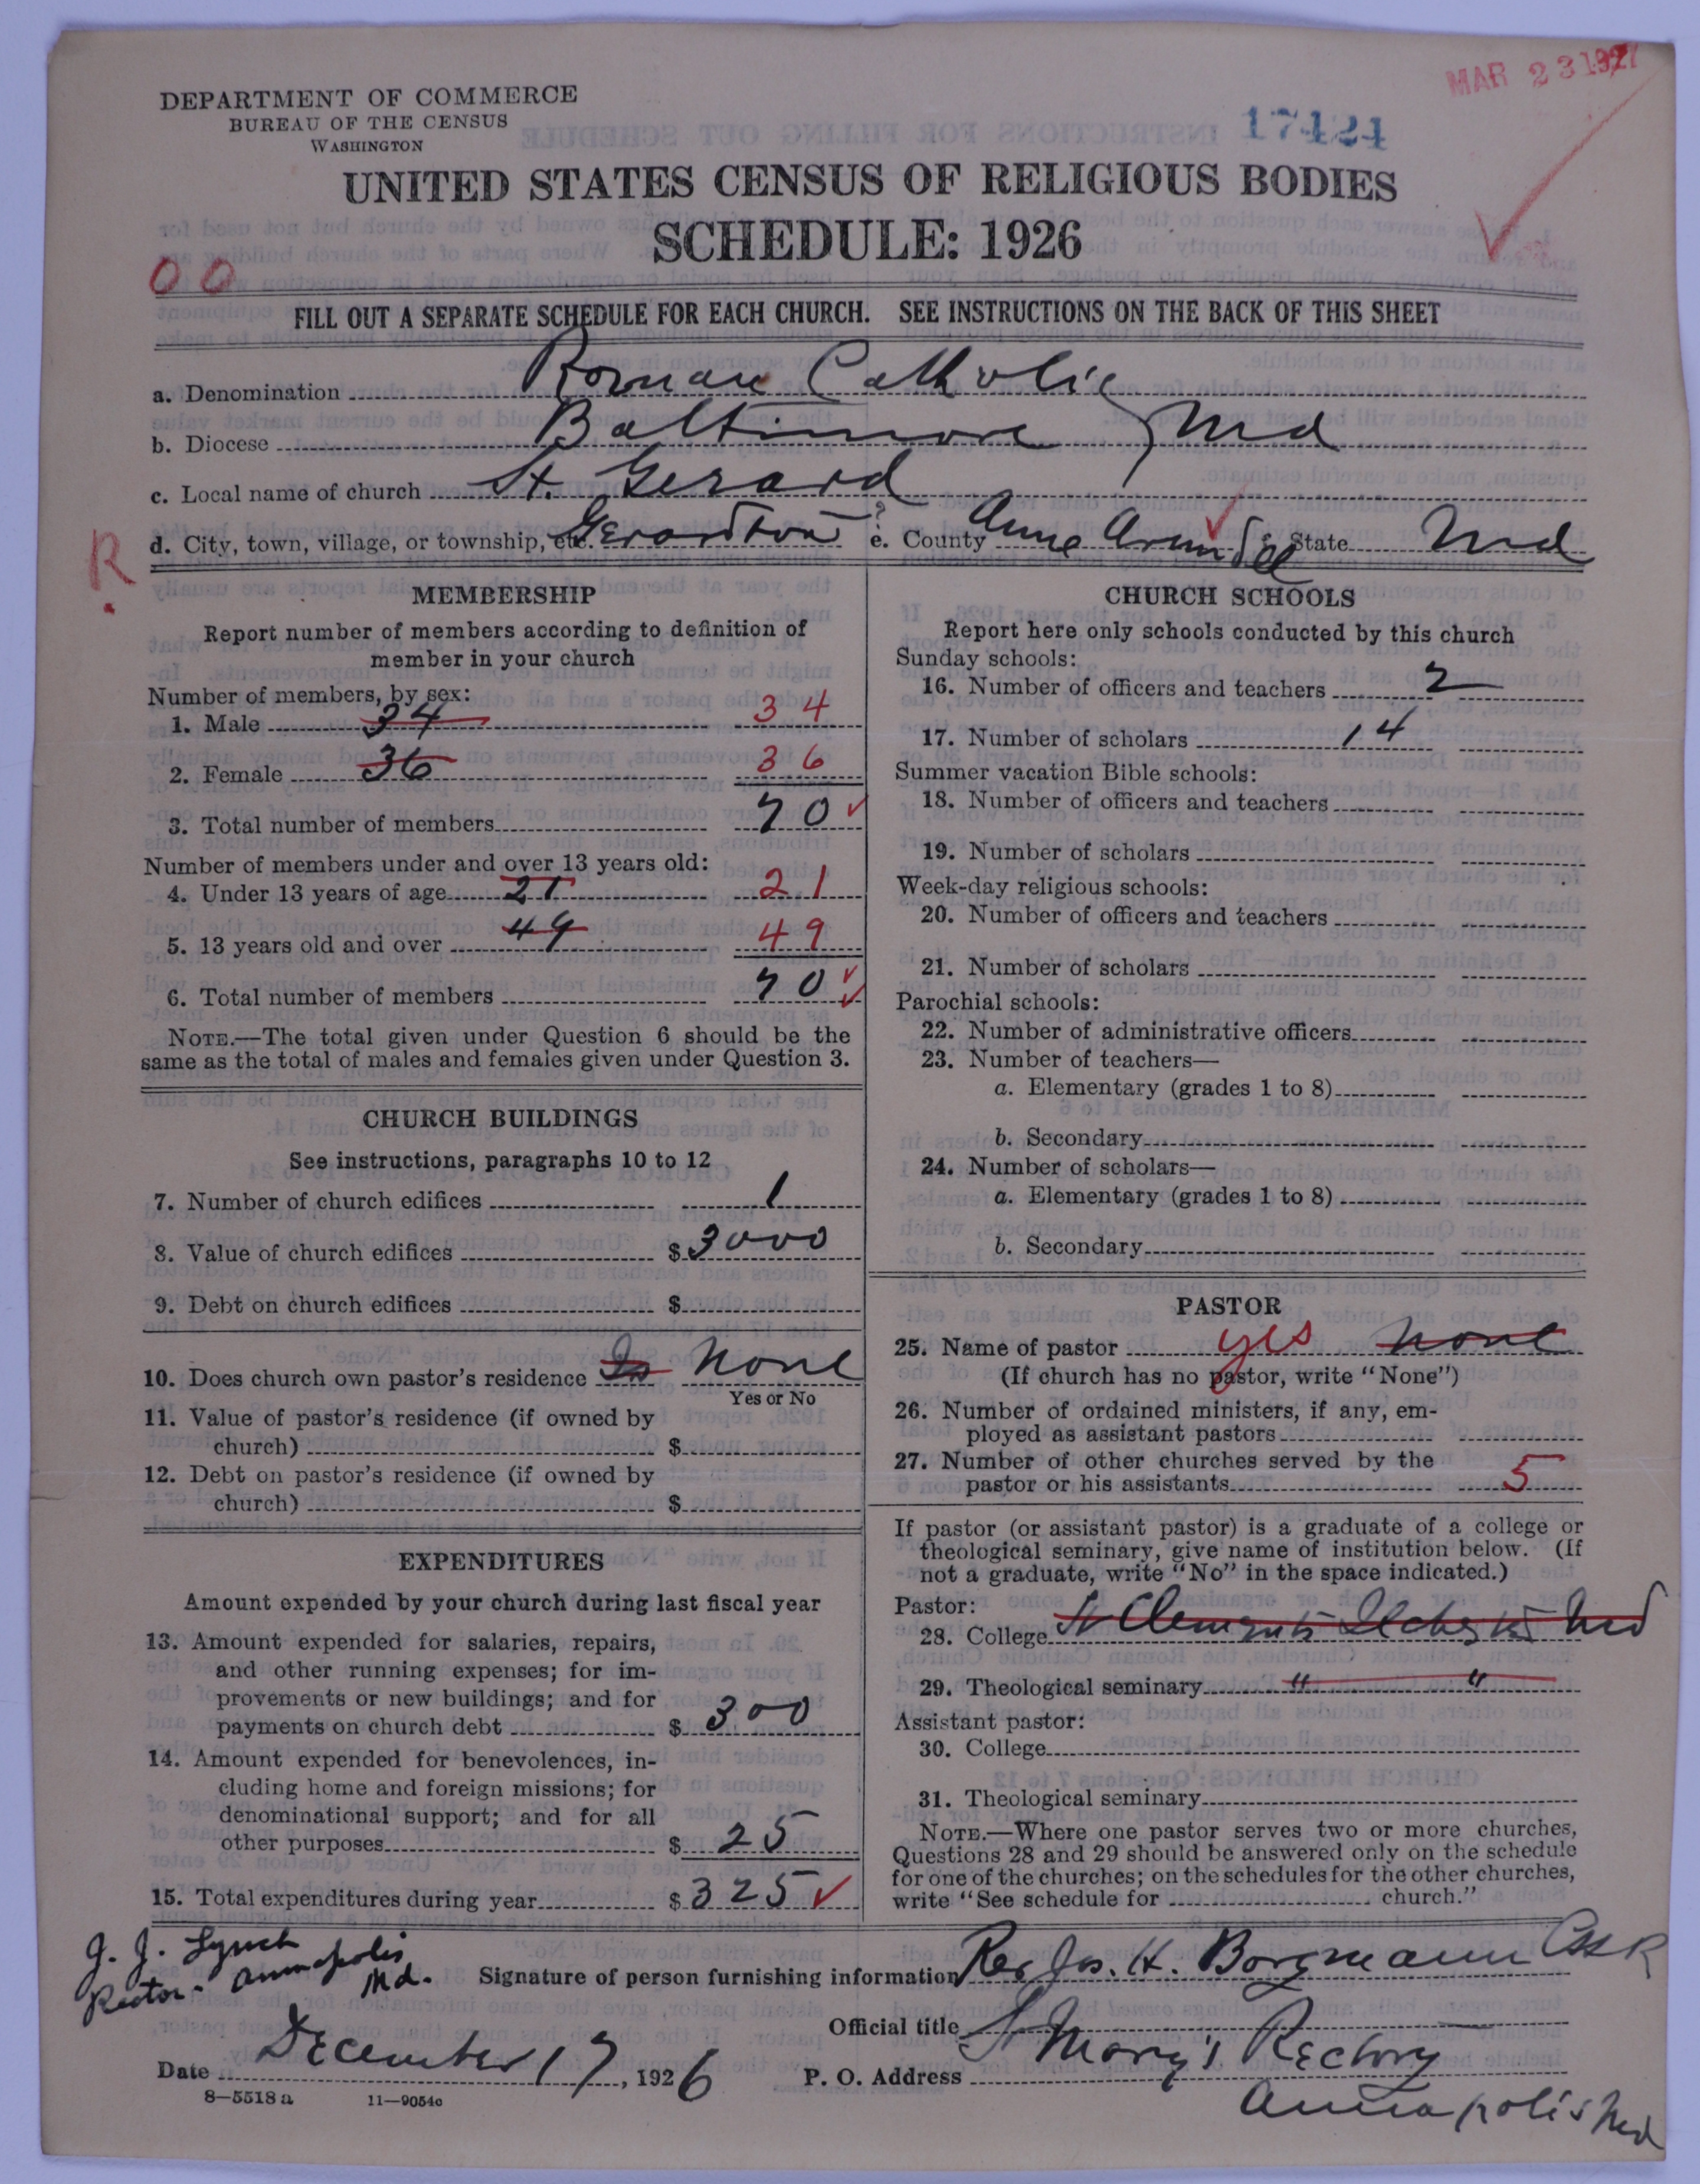 MAR 23 1927
DEPARTMENT OF COMMERCE
BUREAU OF THE CENSUS
WASHINGTON
17424
UNITED STATES CENSUS OF RELIGIOUS BODIES
SCHEDULE: 1926
00
FILL OUT A SEPARATE SCHEDULE FOR EACH CHURCH. SEE INSTRUCTIONS ON THE BACK OF THIS SHEET
a. Denomination Roman Catholic
b. Diocese Baltimore, Md
c. Local name of church St. Gerard
d. City, town, village, or township, etc. Gerardton ? e. County Anne Arundel State Md
R.
MEMBERSHIP
Report number of members according to definition of
member in your church
Number of members, by sex:
1. Male 34 34
2. Female 36 36
3. Total number of members 70
Number of members under and over 13 years old:
4. Under 13 years of age 21 21
5. 13 years old and over 49 49
6. Total number of members 70
NOTE.—The total given under Question 6 should be the
same as the total of males and females given under Question 3.
CHURCH BUILDINGS
See instructions, paragraphs 10 to 12
7. Number of church edifices 1
8. Value of church edifices $ 3000
9. Debt on church edifices $
10. Does church own pastor's residence None
Yes or No
11. Value of pastor's residence (if owned by
church) $
12. Debt on pastor's residence (if owned by
church) $
EXPENDITURES
Amount expended by your church during last fiscal year
13. Amount expended for salaries, repairs,
and other running expenses; for im-
provements or new buildings; and for
payments on church debt $ 300
14. Amount expended for benevolences, in-
cluding home and foreign missions; for
denominational support; and for all
other purposes $ 25
15. Total expenditures during year $ 325
CHURCH SCHOOLS
Report here only schools conducted by this church
Sunday schools:
16. Number of officers and teachers 2
17. Number of scholars 14
Summer vacation Bible schools:
18. Number of officers and teachers
19. Number of scholars
Week-day religious schools:
20. Number of officers and teachers
21. Number of scholars
Parochial schools:
22. Number of administrative officers
23. Number of teachers—
a. Elementary (grades 1 to 8)
b. Secondary
24. Number of scholars—
a. Elementary (grades 1 to 8)
b. Secondary
PASTOR
25. Name of pastor yes none
(If church has no pastor, write "None")
26. Number of ordained ministers, if any, em-
ployed as assistant pastors
27. Number of other churches served by the
pastor or his assistants 5
If pastor (or assistant pastor) is a graduate of a college or
theological seminary, give name of institution below. (If
not a graduate, write "No" in the space indicated.)
Pastor:
28. College St Clements Ilchester Md
29. Theological seminary " "
Assistant pastor:
30. College
31. Theological seminary
NOTE.—Where one pastor serves two or more churches,
Questions 28 and 29 should be answered only on the schedule
for one of the churches; on the schedules for the other churches,
write "See schedule for church."
J. J. Lynch
Rector - Annapolis
Md.
Signature of person furnishing information Rev Jos. H. Borgmann CSSR
Official title
Date December 17, 1926 P. O. Address St Mary's Rectory
Annapolis Md
8—5518 a 11—9054c